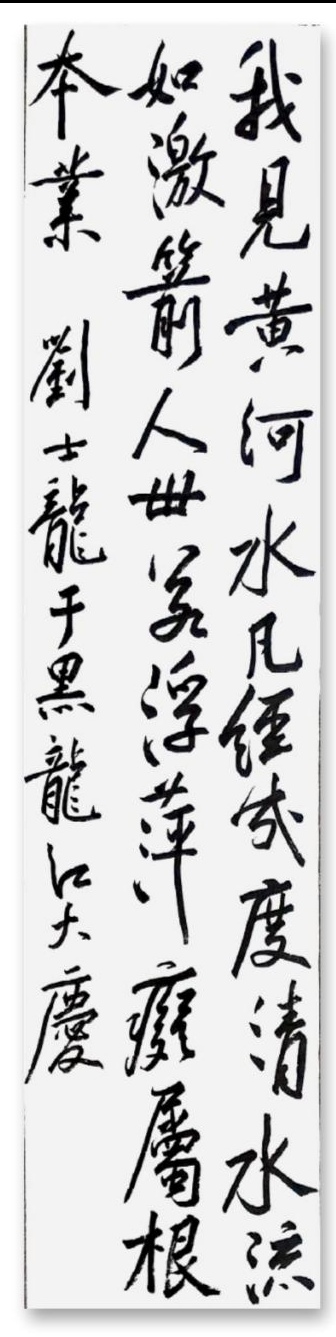 我見黃河水凡經幾度清水流
如激箭人世若浮萍癡屬根
本業 劉士龍于黑龍江大慶